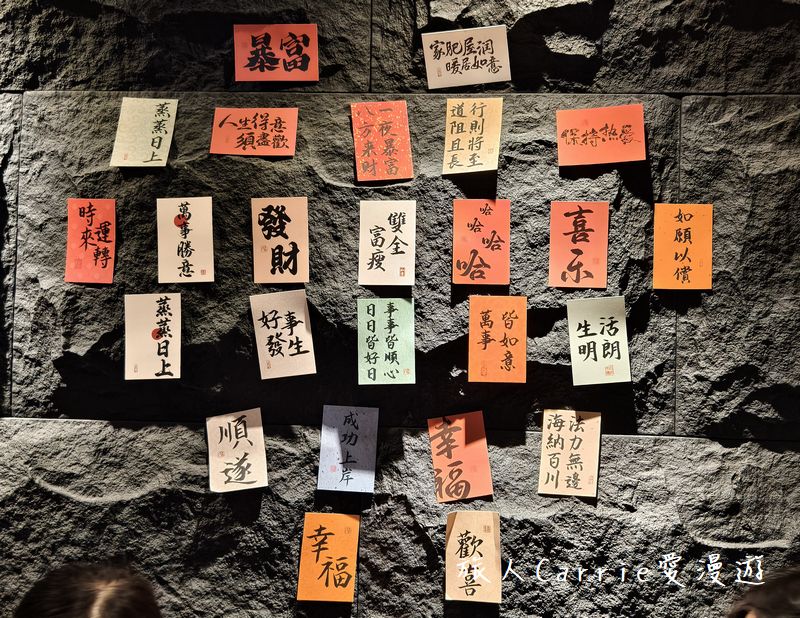 暴富
家肥屋润
暖居如意
蒸蒸日上
人生得意
須盡歡
一夜暴富
八方来財
行則將至
道阻且長
保持热愛
時來
運轉
萬事勝意
發財
雙全
富瘦
哈哈哈哈
喜乐
如願以償
蒸蒸日上
好事
發生
事事皆順心
日日皆好日
萬事
皆如意
生活
明朗
順遂
成功上岸
幸福
法力無邊
海納百川
幸福
歡喜
旅人Carrie愛漫遊